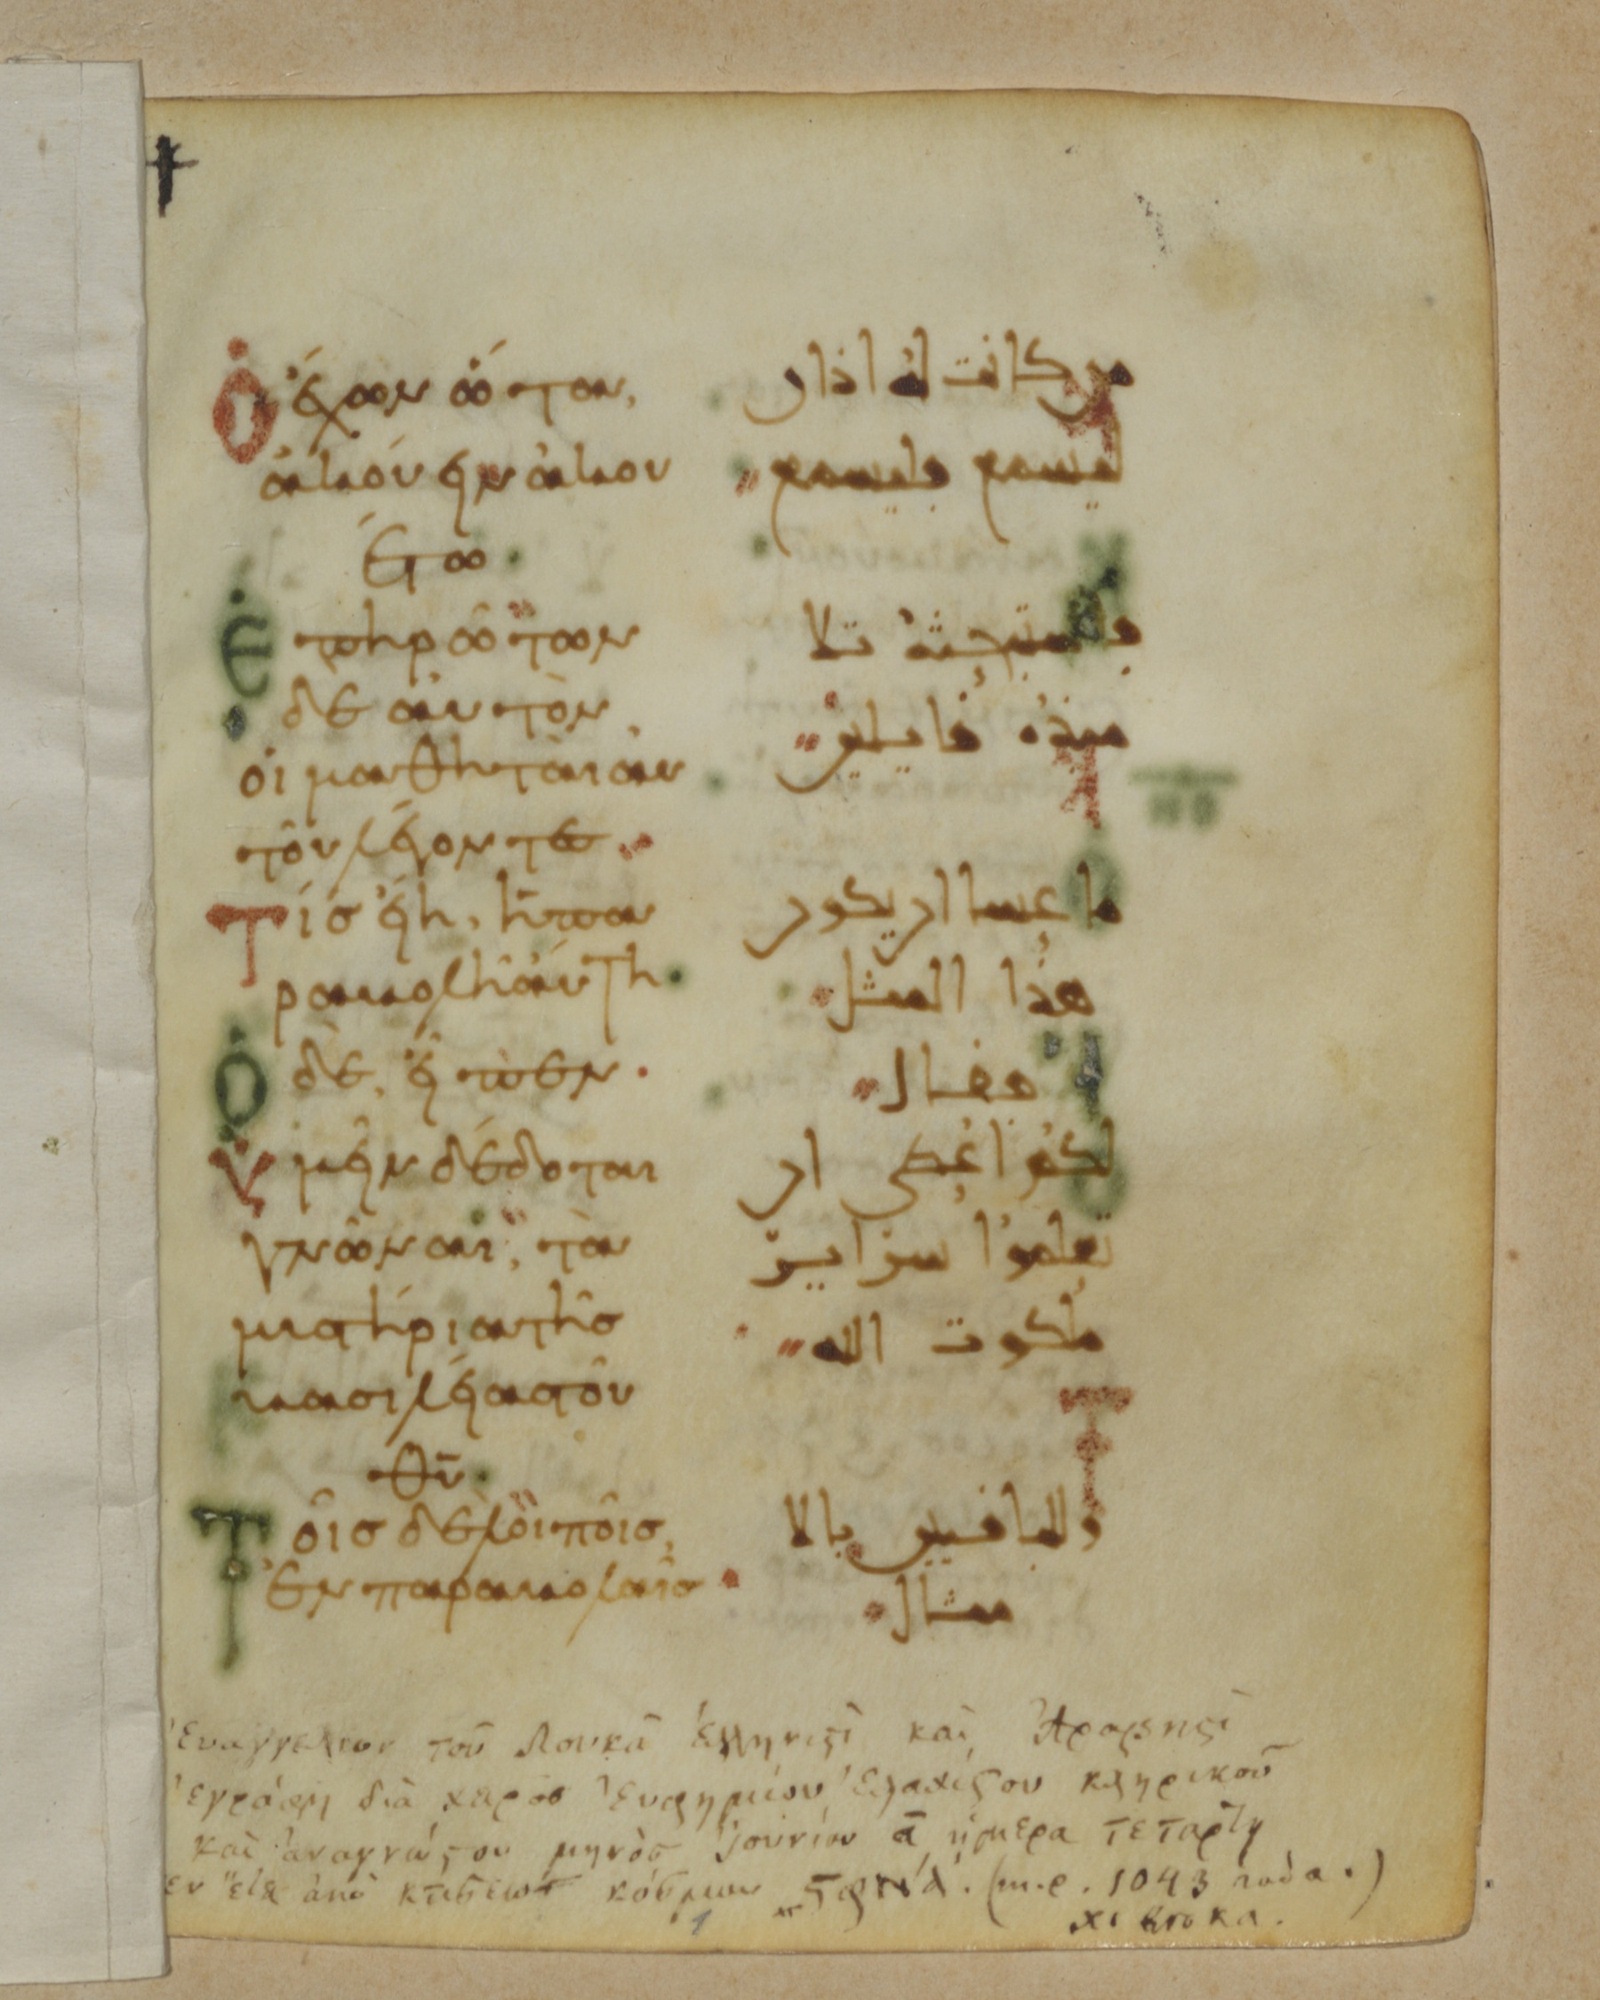 Ὁ ἔχων ὅτα,
ἀκούην ἀκου
έτω.
Ἐπηρώτων
δὲ αὐτὸν,
οἱ μαθηταὶ αὐ
τοῦ λέγοντες
Τίς ἔη, ἡ πα
ραβολὴ αὕτη.
Ὁ δὲ, εἶπεν.
Ὑμῖν δέδοται
γνῶναι, τὰ
μιστήρια τῆς
βασιλείας τοῦ
θῦ.
Τοῖς δὲ λοιποῖς,
ἐν παραβολαῖς
من كانت له اذان
ليسمع فليسمع
فاستبحثه تلا
ميذه قايلين
ما عسا ان يكون
هذا المثل
فقال
لكم اعطي ان
تعلموا سراير
ملكوت الله
والباقيين بالا
مثال
Ευαγγελιον τοῦ Λουκᾶ Ἑλληνιςὶ καὶ Ἀραβηςὶ
ἐγράφη διὰ χειρὸς Ἐυφημίου Ἐλαχίςου κληρικοῦ
καὶ ἀναγνώςου μηνὸς Ἰουνίου α ἡμερα τεταρτῃ
ἐν ἔτει ἀπὸ κτισεως κόσμου ςφνά. (т.е. 1043 года.)
XI вѣка.